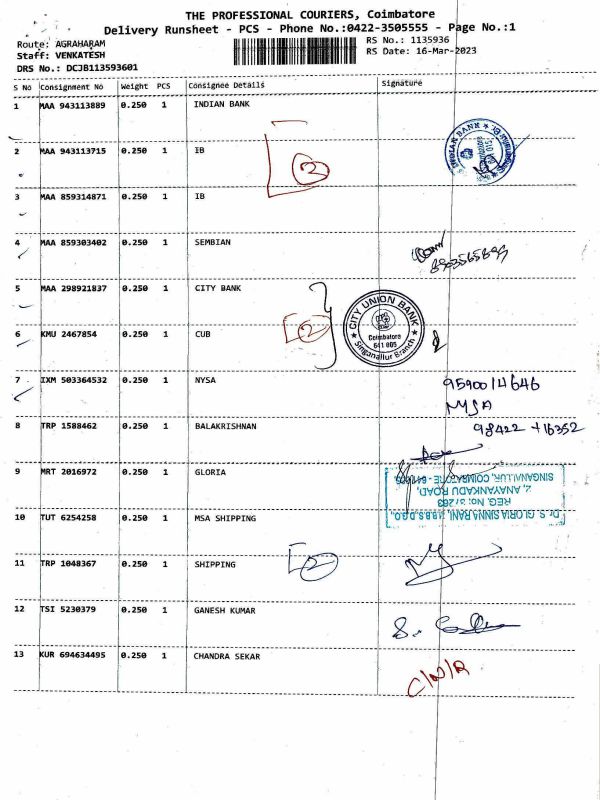 THE PROFESSIONAL COURIERS, Coimbatore
Delivery Runsheet - PCS - Phone No.:0422-3505555 - Page No.:1
Route: AGRAHARAM
RS No.: 1135936
Staff: VENKATESH
RS Date: 16-Mar-2023
DRS No.: DCJB113593601
S No Consignment No Weight PCS Consignee Details Signature
1 MAA 943113889 0.250 1 INDIAN BANK
INDIAN BANK
Coimbatore
2 MAA 943113715 0.250 1 IB
2
3 MAA 859314871 0.250 1 IB
4 MAA 859303402 0.250 1 SEMBIAN
5 MAA 298921837 0.250 1 CITY BANK
CITY UNION BANK
Coimbatore
641 005
Singanallur Branch
6 KMU 2467854 0.250 1 CUB
2
7 IXM 503364532 0.250 1 NYSA
9590014646
NYSA
8 TRP 1588462 0.250 1 BALAKRISHNAN
98422 16352
9 MRT 2016972 0.250 1 GLORIA
Dr. S. GLORIA SINNA RANI, M.B.B.S.D.G.O.,
2, ANAYANKADU ROAD,
SINGANALLUR, COIMBATORE -
10 TUT 6254258 0.250 1 MSA SHIPPING
11 TRP 1048367 0.250 1 SHIPPING
2
12 TSI 5230379 0.250 1 GANESH KUMAR
13 KUR 694634495 0.250 1 CHANDRA SEKAR
C/N/R